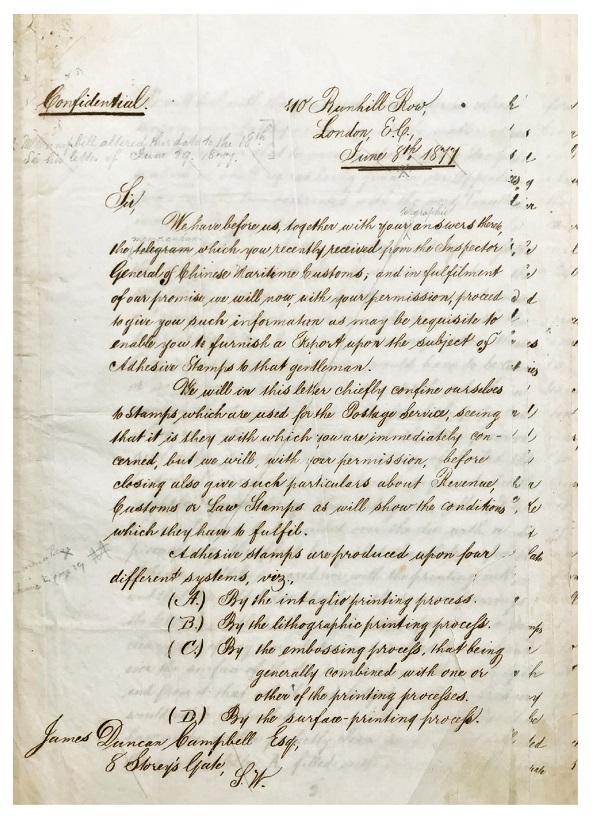 Confidential.
110 Bunhill Row,
London, E.C.,
altered this date to the 18th
See his letter of June 29. 1877.
June 8th 1877
Sir,
We have before us, together with your answers thereto,
the telegram which you recently received from the Inspector
General of Chinese Maritime Customs; and in fulfilment
of our promise, we will now, with your permission, proceed
to give you such information as may be requisite to
enable you to furnish a Report upon the subject of
Adhesive Stamps to that gentleman.
We will in this letter chiefly confine ourselves
to Stamps which are used for the Postage Service, seeing
that it is they with which you are immediately con-
cerned, but we will, with your permission, before
closing also give such particulars about Revenue,
Customs or Law Stamps as will show the conditions
which they have to fulfil.
Adhesive stamps are produced upon four
different systems, viz.,
(A.) By the intaglio printing process.
(B.) By the lithographic printing process.
(C.) By the embossing process, that being
generally combined with one or
other of the printing processes.
(D.) By the surface-printing process.
James Duncan Campbell Esq,
8 Storey's Gate,
S.W.